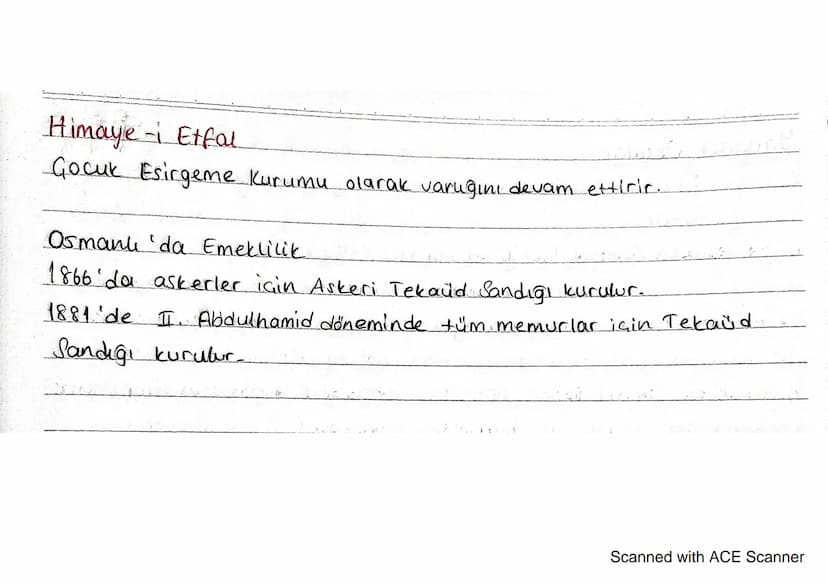 Himaye-i Etfal
Çocuk Esirgeme Kurumu olarak varlığını devam ettirir.
Osmanlı'da Emeklilik
1866'da askerler için Askeri Tekaüd Sandığı kurulur.
1881'de II. Abdulhamid döneminde tüm memurlar için Tekaüd
Sandığı kurulur.
Scanned with ACE Scanner